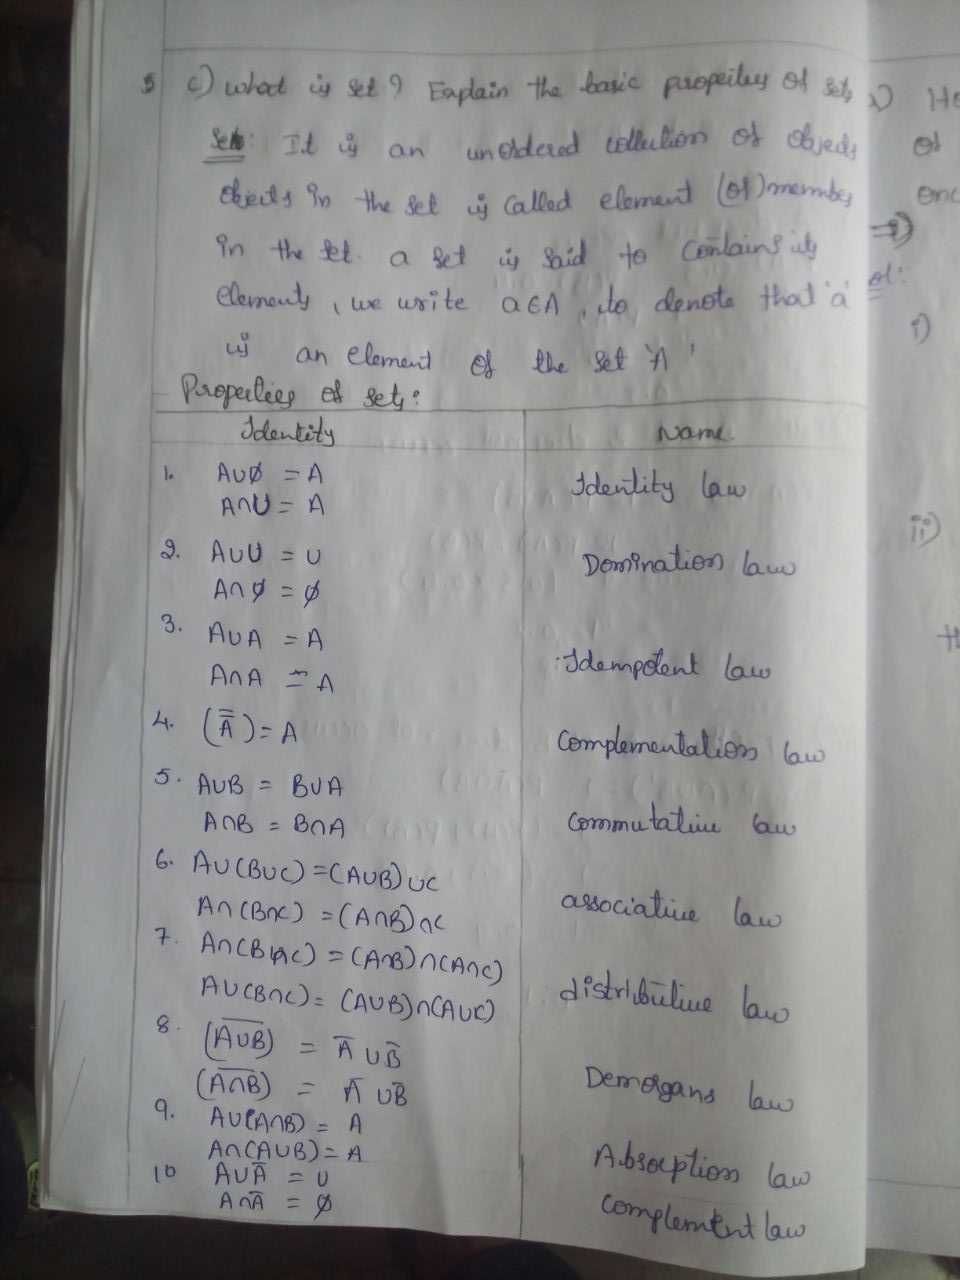 5 c) what is set? Explain the basic properties of sets
Set: It is an unordered collection of objects
objects in the set is called element (or) member
in the set. a set is said to contains its
elements, we write a∈A, to denote that 'a'
is an element of the set 'A'
Properties of sets:
Identity Name
1. A∪∅ = A
A∩U = A
Identity law
2. A∪U = U
A∩∅ = ∅
Domination law
3. A∪A = A
A∩A = A
Idempotent law
4. (A̿) = A
Complementation law
5. A∪B = B∪A
A∩B = B∩A
Commutative law
6. A∪(B∪C) = (A∪B)∪C
A∩(B∩C) = (A∩B)∩C
associative law
7. A∩(B∩C) = (A∩B)∩(A∩C)
A∪(B∩C) = (A∪B)∩(A∪C)
distributive law
8. (A∪B)̅ = A̅ ∪ B̅
(A∩B)̅ = A̅ ∪ B̅
Demorgans law
9. A∪(A∩B) = A
A∩(A∪B) = A
Absorption law
10 A∪A̅ = U
A∩A̅ = ∅
Complement law
a) Ho
of
onc
=>)
ol:
i)
ii)
th